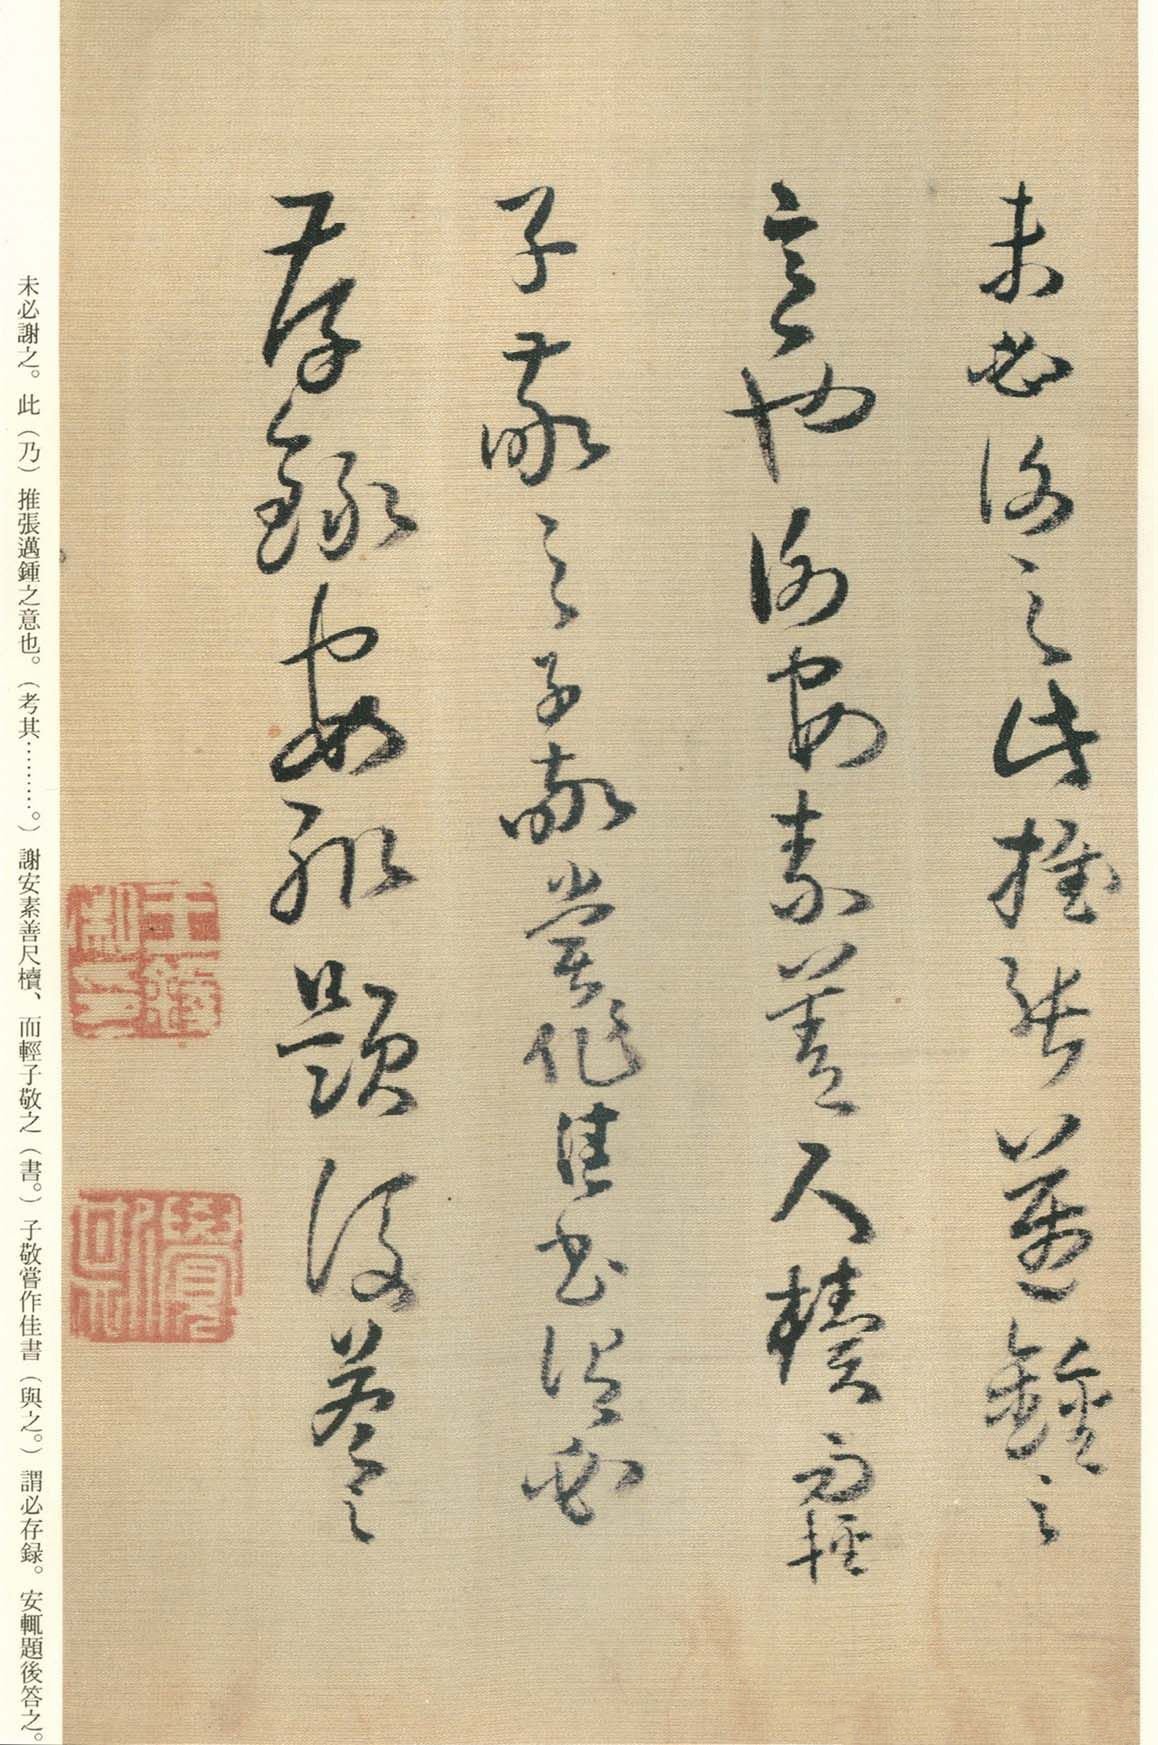 未必謝之此推張邁鍾之
意也謝安素善尺牘而輕
子敬之子敬嘗作佳書謂必
存錄安輒題後答之
王鐸之印
未必謝之。此（乃）推張邁鍾之意也。（考其………。）謝安素善尺牘、而輕子敬之（書。）子敬嘗作佳書（與之。）謂必存録。安輒題後答之。